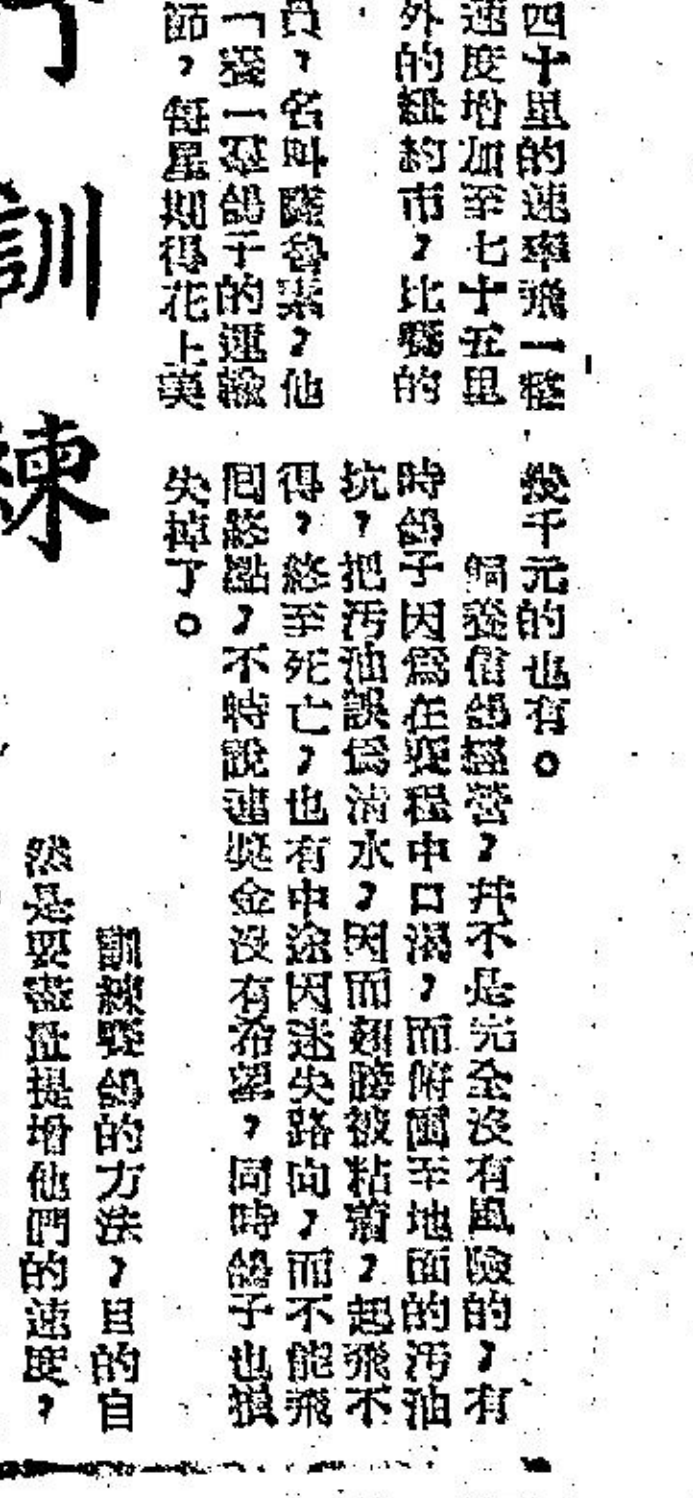 四十里的速率飛一整
速度增加至七十五里
外的紐約市，比賽的
員，名叫薩魯素，他
「養一羣鴿子的運輸
節，每星期得花上美
幾千元的也有。
飼養信鴿經營，幷不是完全沒有風險的，有
時鴿子因爲在賽程中口渴，而俯衝至地面的汚油
坑，把汚油誤爲清水，因而翅膀被粘着，起飛不
得，終至死亡，也有中途因迷失路向，而不能飛
囘終點，不特說連獎金沒有希望，同時鴿子也損
失掉了。
訓練
訓練賽鴿的方法，目的自
然是要盡量提增他們的速度，